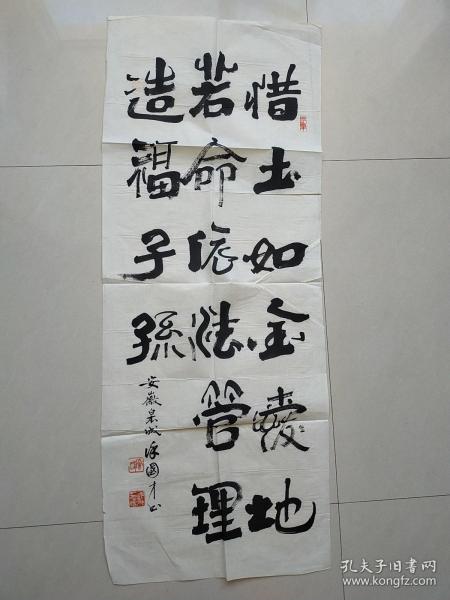 惜土如金愛地
若命依法管理
造福子孫
安徽泉城徐國才書
孔夫子旧书网
www.kongfz.com